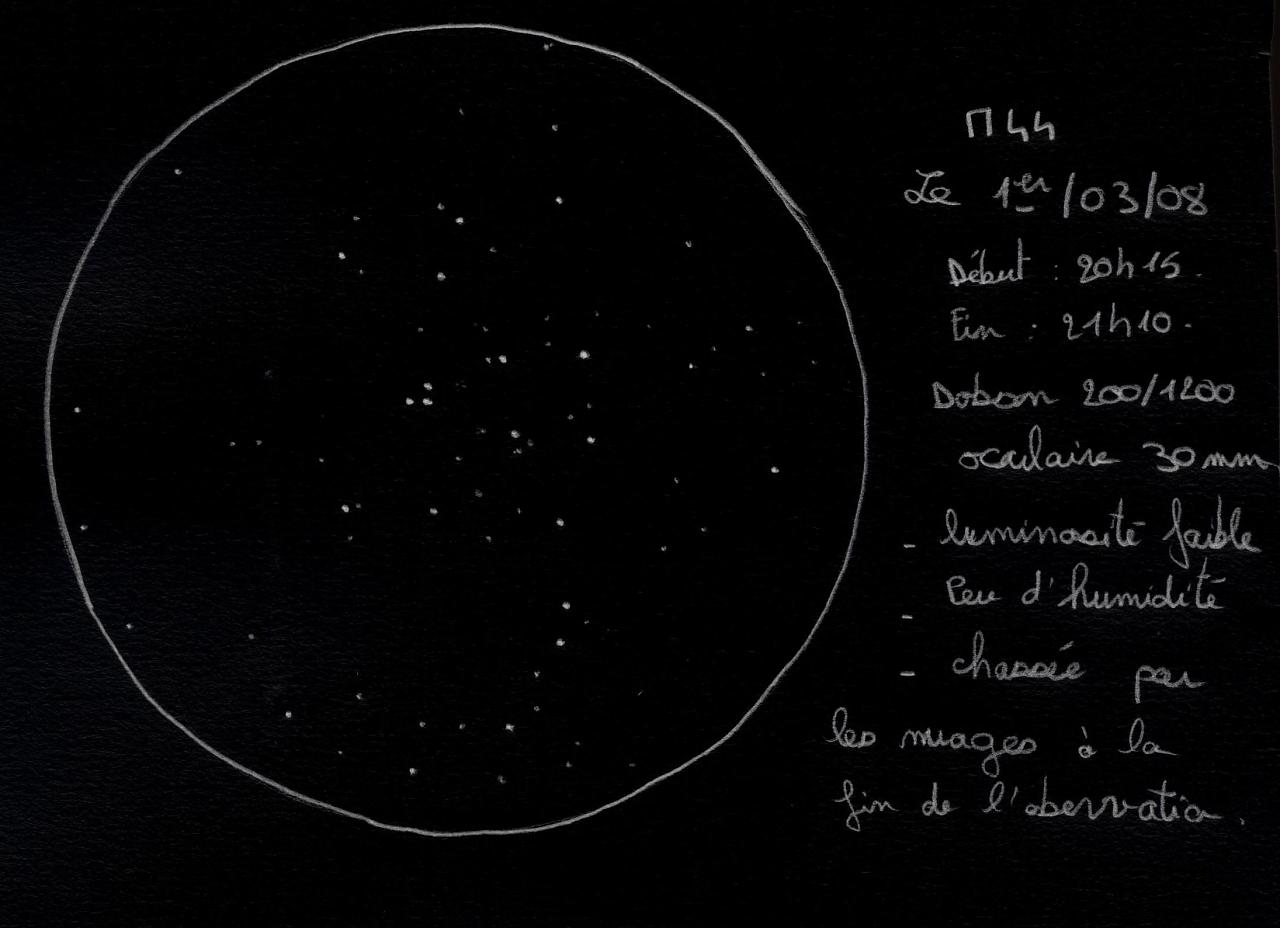 M44
Le 1er/03/08
Début : 20h15.
Fin : 21h10.
Dobson 200/1200
oculaire 30mm
- luminosité faible
- Peu d'humidité
- chassée par
les nuages à la
fin de l'obervatio.